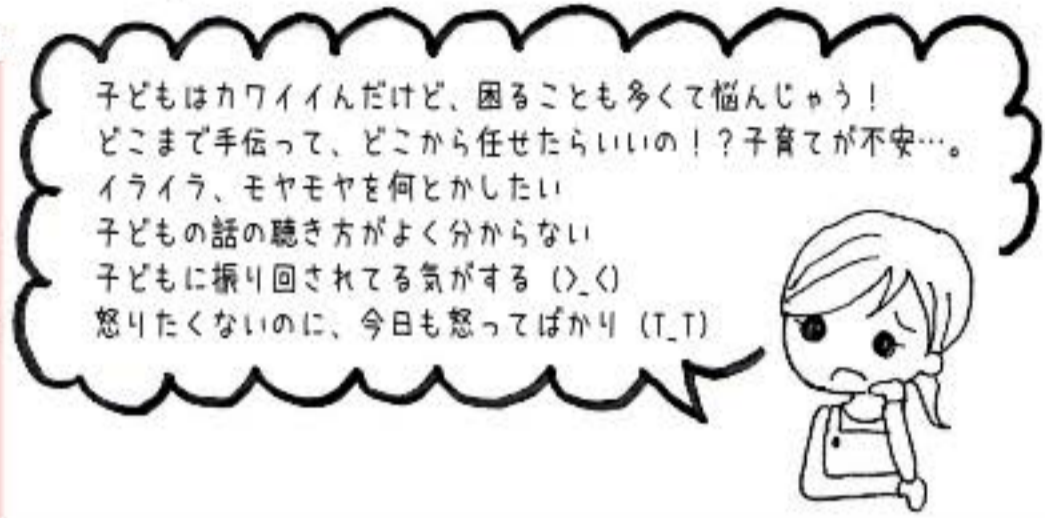 子どもはカワイイんだけど、困ることも多くて悩んじゃう！
どこまで手伝って、どこから任せたらいいの！？子育てが不安…。
イライラ、モヤモヤを何とかしたい
子どもの話の聴き方がよく分からない
子どもに振り回されてる気がする（>_<）
怒りたくないのに、今日も怒ってばかり（T_T）